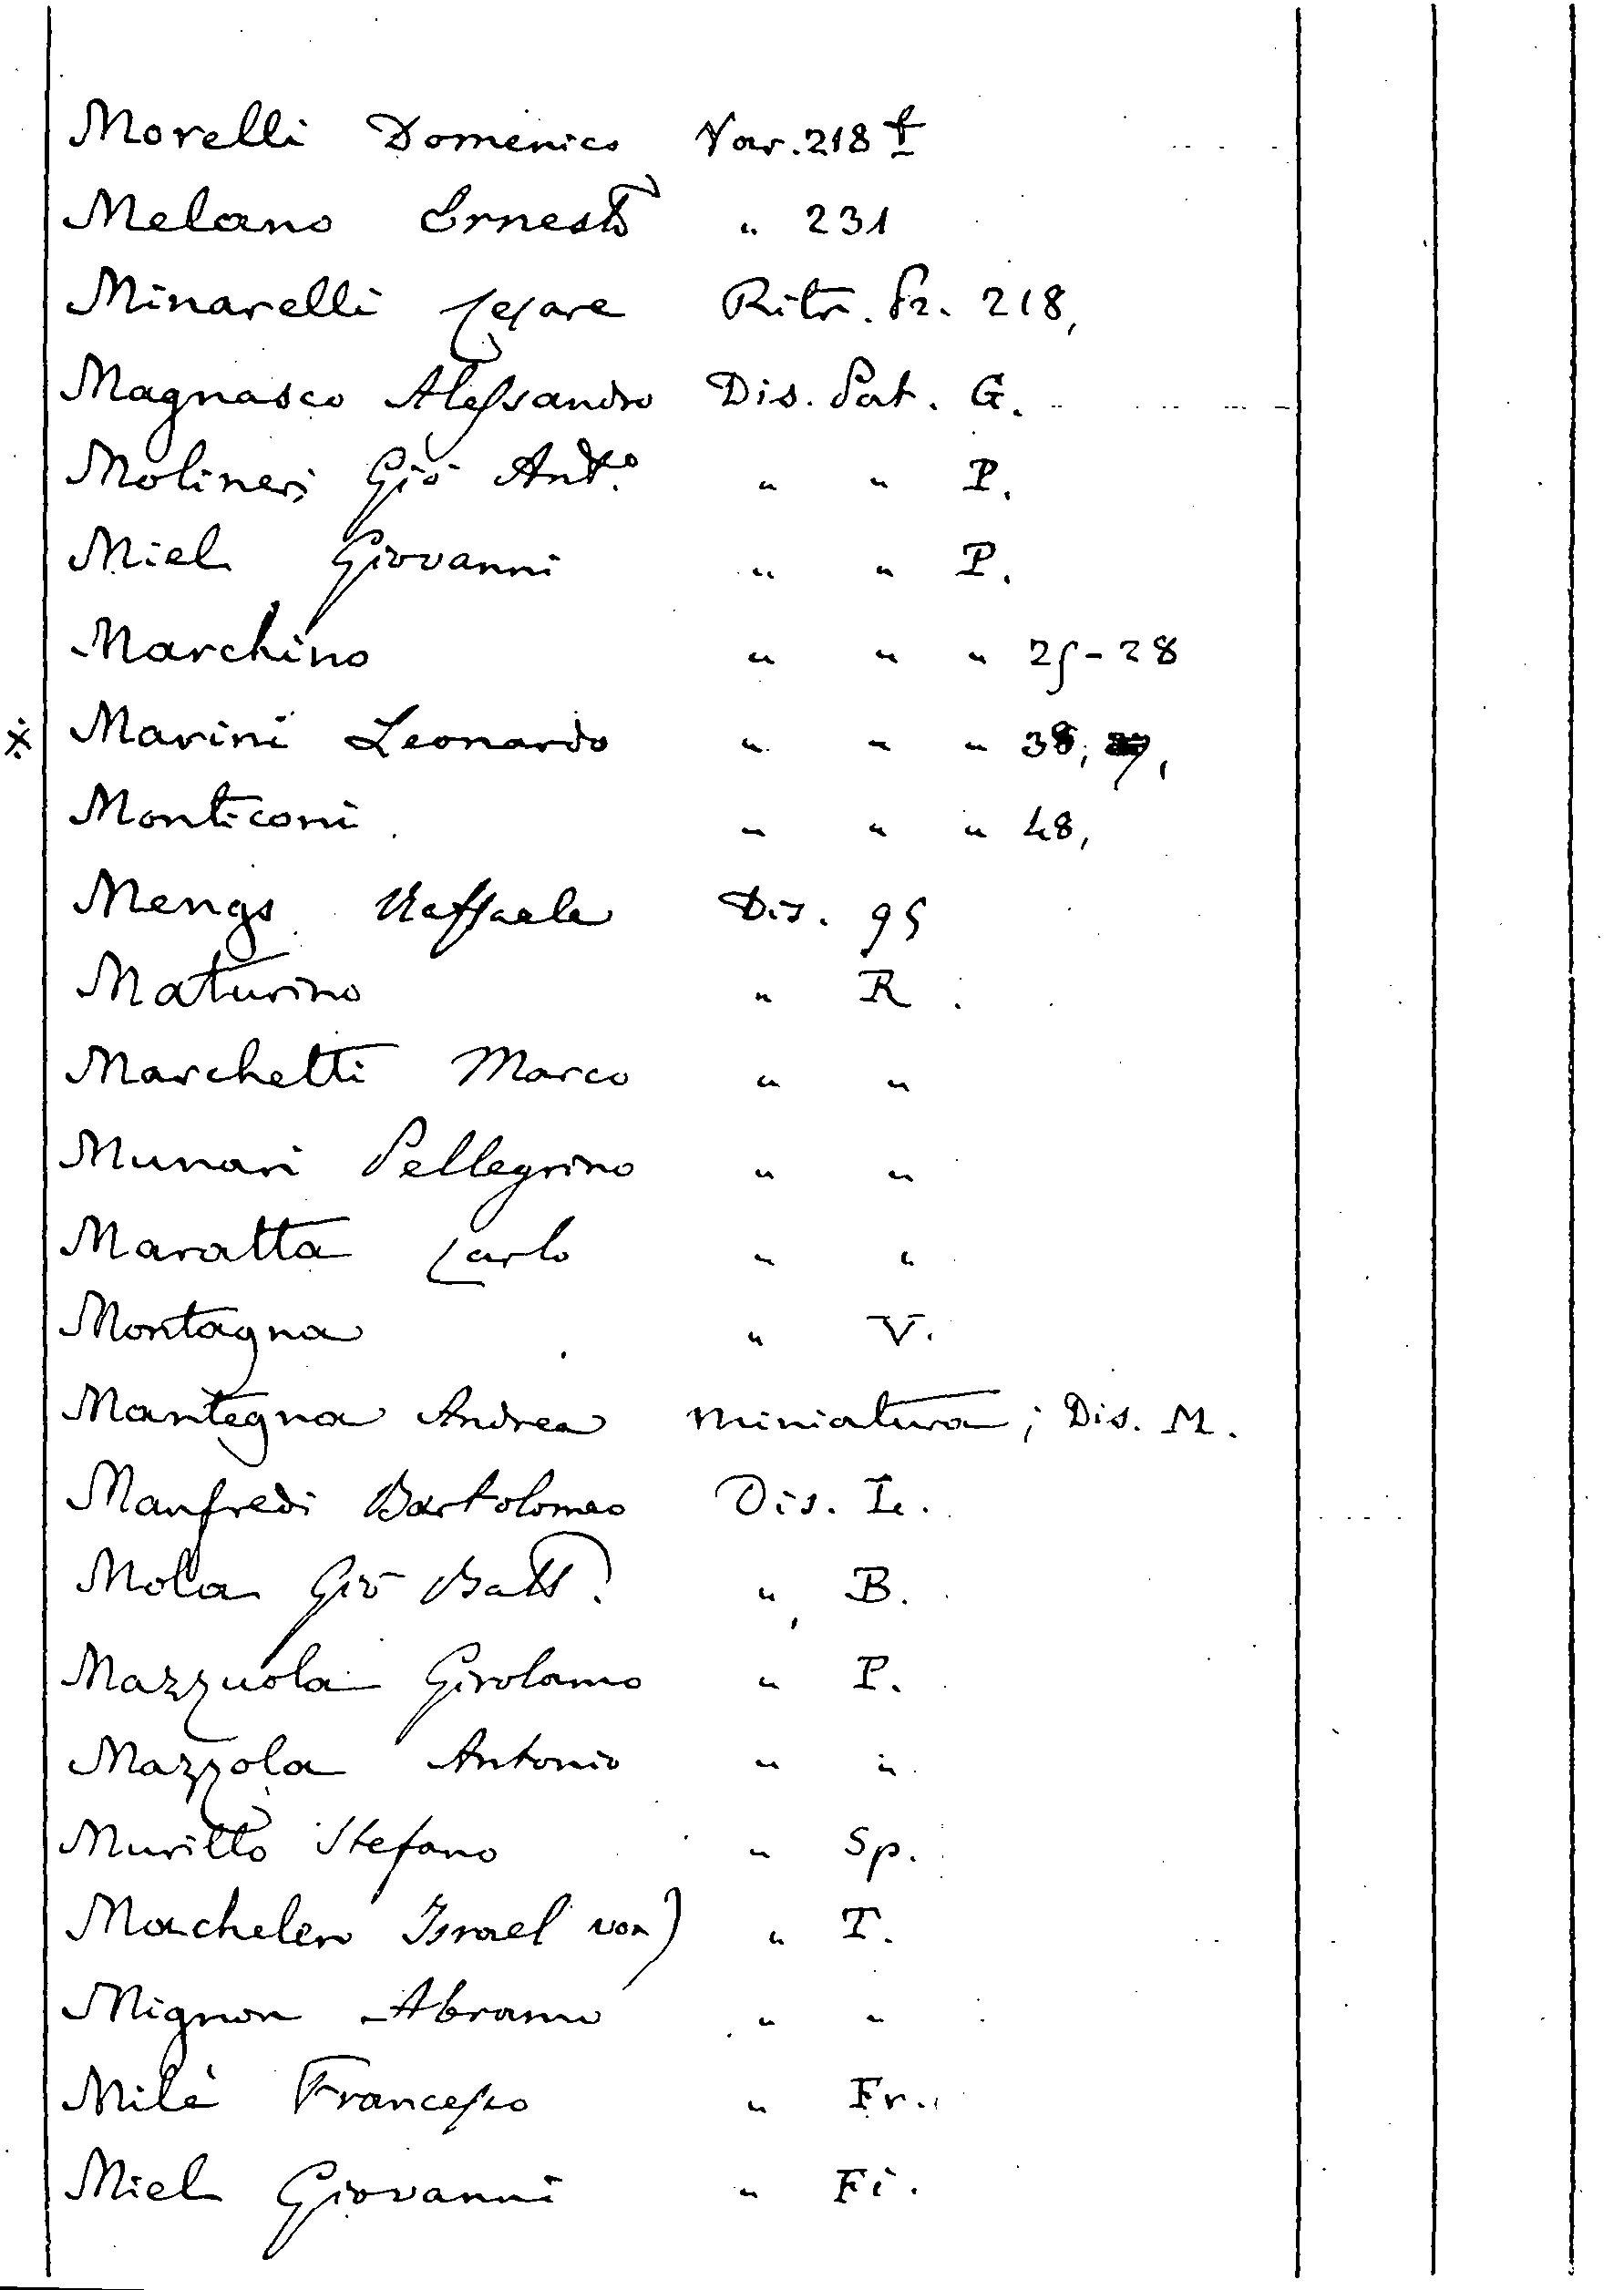 Morelli Domenico Var. 218 t
Melano Ernesto " 231
Minarelli Cesare Ritr. Pr. 218,
Magnasco Alessandro Dis. Pat. G.
Molineri Gio Ant.º " " P.
Miel Giovanni " " P.
Marchino " " " 25-28
※ Marini Leonardo " " " 38,
Monticoni " " " 48,
Mengs Raffaele Dis. 95
Maturino " R.
Marchetti Marco " "
Munari Pellegrino " "
Maratta Carlo " "
Montagna " V.
Mantegna Andrea miniatura; Dis. M.
Manfredi Bartolomeo Dis. L.
Mola Gio Batt. " B.
Mazzuola Girolamo " P.
Mazzola Antonio " "
Murillo Stefano " Sp.
Machelen Israel von) " T.
Mignon Abramo " "
Milè Francesco " Fr.
Miel Giovanni " Fi.